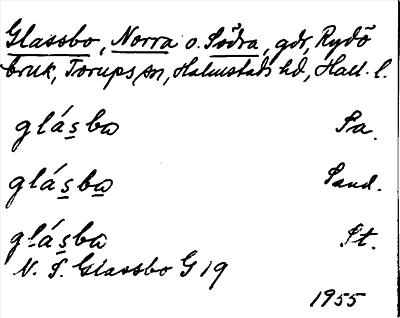 Glassbo, Norra o. Södra, gdr, Rydö
bruk, Torups sn, Halmstads hd, Hall. l.
glásba Sa.
glásba Sand.
glásba St.
N. S. Glassbo G 19
1955